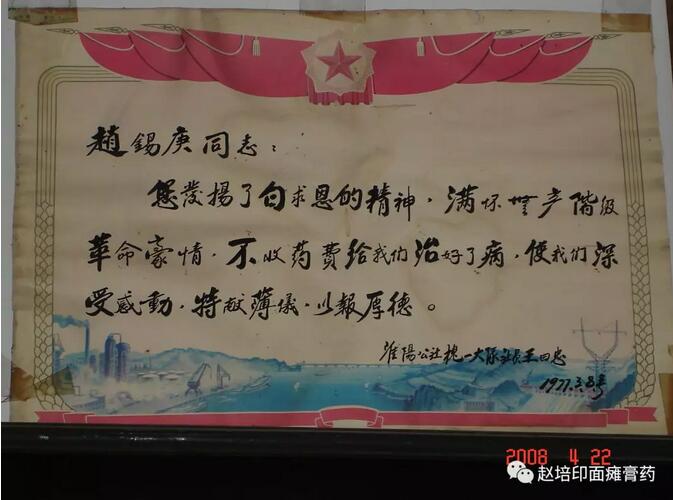 趙錫庚同志：
您发揚了白求恩的精神，满怀無产階级
革命豪情，不收药費给我们治好了病，使我们深
受感動，特献薄儀，以報厚德。
淮陽公社槐一大隊 王田忠
1977.3.8号
2008 4 22
赵培印面瘫膏药